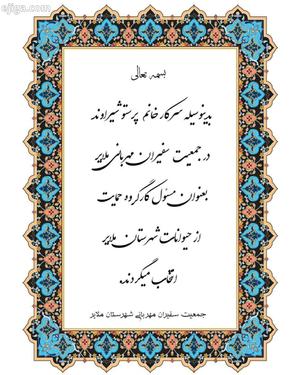 ejiga.com
بسمه تعالی
بدینوسیله سرکار خانم پرستو شیراوند
در جمعیت سفیران مهربانی ملایر
بعنوان مسئول کارگروه حمایت
از حیوانات شهرستان ملایر
انتخاب میگردند
جمعیت سفیران مهربانی شهرستان ملایر